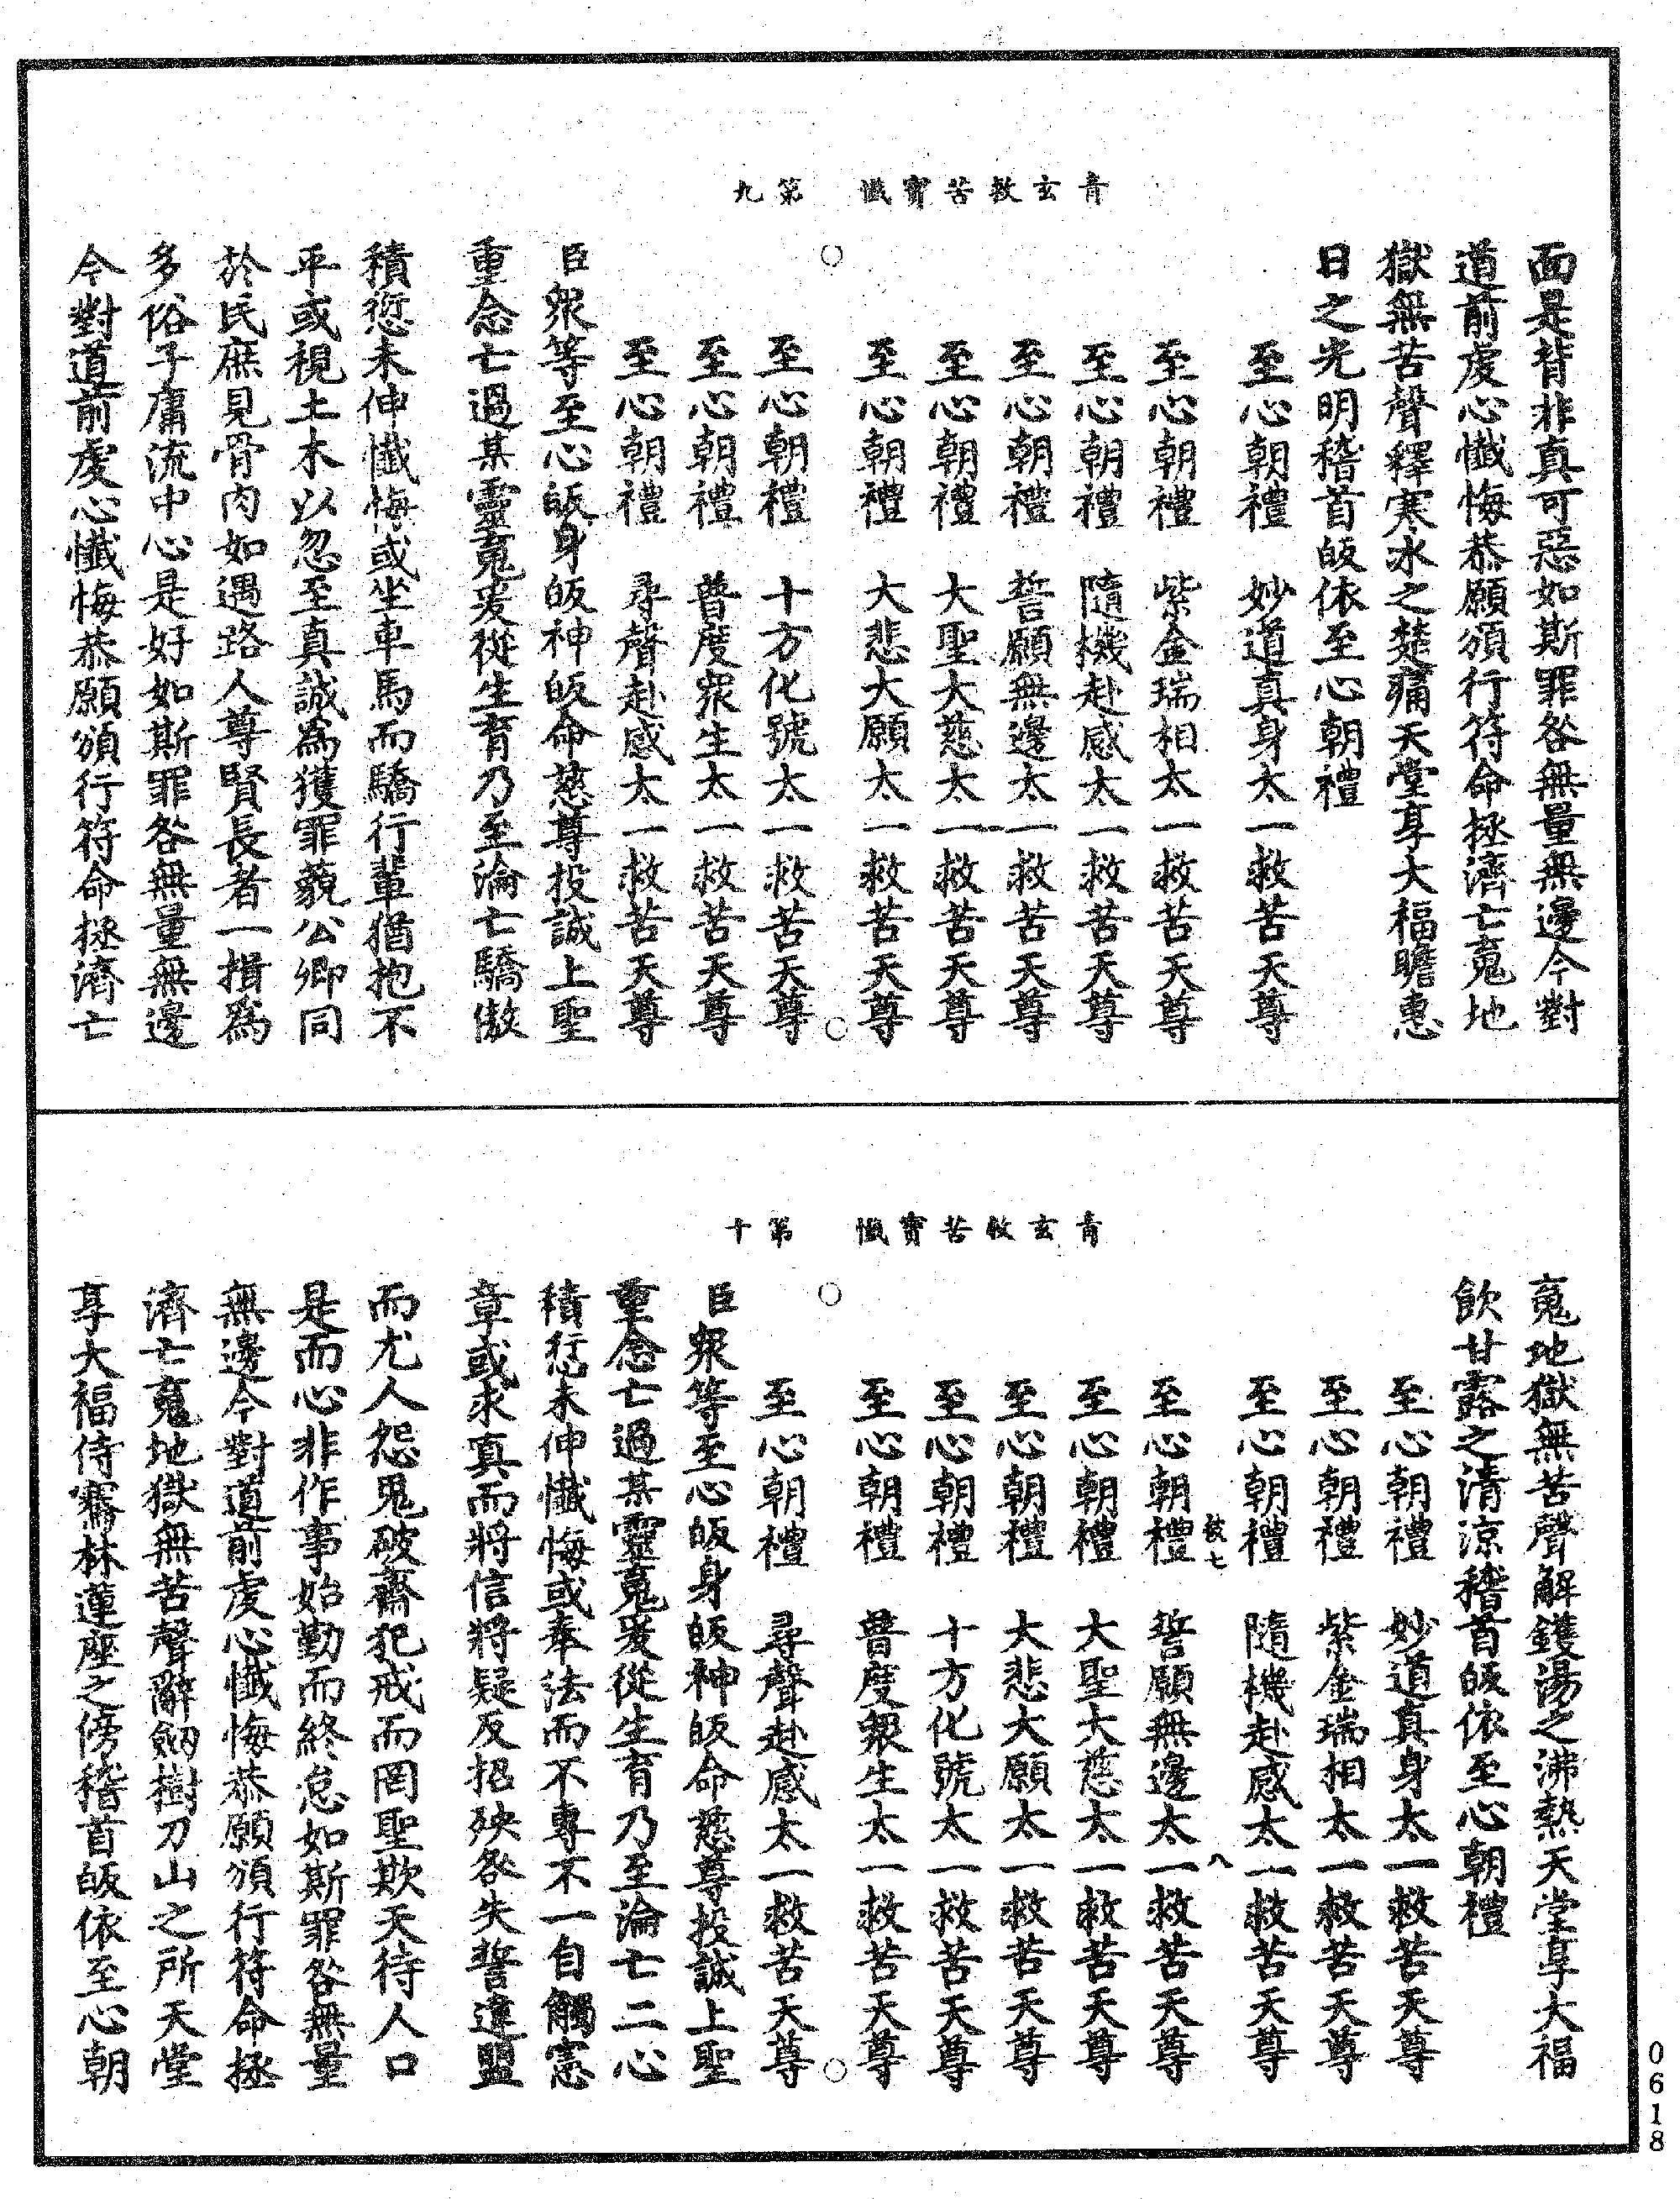 青玄救苦寶懺　第九
面是背非真可惡如斯罪咎無量無邊今對
道前虔心懺悔恭願頒行符命拯濟亡䰟地
獄無苦聲釋寒氷之楚痛天堂享大福瞻惠
日之光明稽首皈依至心朝禮
至心朝禮　妙道真身太一救苦天尊
至心朝禮　紫金瑞相太一救苦天尊
至心朝禮　隨機赴感太一救苦天尊
至心朝禮　誓願無邊太一救苦天尊
至心朝禮　大聖大慈太一救苦天尊
至心朝禮　大悲大願太一救苦天尊
至心朝禮　十方化號太一救苦天尊
至心朝禮　普度衆生太一救苦天尊
至心朝禮　尋聲赴感太一救苦天尊
臣衆等至心皈身皈神皈命慈尊投誠上聖
重念亡過某靈䰟爰從生育乃至淪亡驕傲
積愆未伸懺悔或坐車馬而驕行輩猶抱不
平或視土木以忽至真誠為獲罪藐公卿同
於氏庶見骨肉如遇路人尊賢長者一揖爲
多俗子庸流中心是好如斯罪咎無量無邊
今對道前虔心懺悔恭願頒行符命拯濟亡
青玄救苦寶懺　第十
䰟地獄無苦聲解鑊湯之沸熱天堂享大福
飲甘露之清涼稽首皈依至心朝禮
至心朝禮　妙道真身太一救苦天尊
至心朝禮　紫金瑞相太一救苦天尊
至心朝禮　隨機赴感太一救苦天尊
八
至心朝禮　誓願無邊太一救苦天尊
至心朝禮　大聖大慈太一救苦天尊
至心朝禮　大悲大願太一救苦天尊
至心朝禮　十方化號太一救苦天尊
至心朝禮　普度衆生太一救苦天尊
至心朝禮　尋聲赴感太一救苦天尊
臣衆等至心皈身皈神皈命慈尊投誠上聖
重念亡過某靈䰟爰從生育乃至淪亡二心
積愆未伸懺悔或奉法而不專不一自觸憲
章或求真而將信將疑反招殃咎失誓違盟
而尤人怨鬼破齋犯戒而罔聖欺天待人口
是而心非作事始勤而終怠如斯罪咎無量
無邊今對道前虔心懺悔恭願頒行符命拯
濟亡䰟地獄無苦聲辭劒樹刀山之所天堂
享大福侍騫林蓮座之傍稽首皈依至心朝
0618